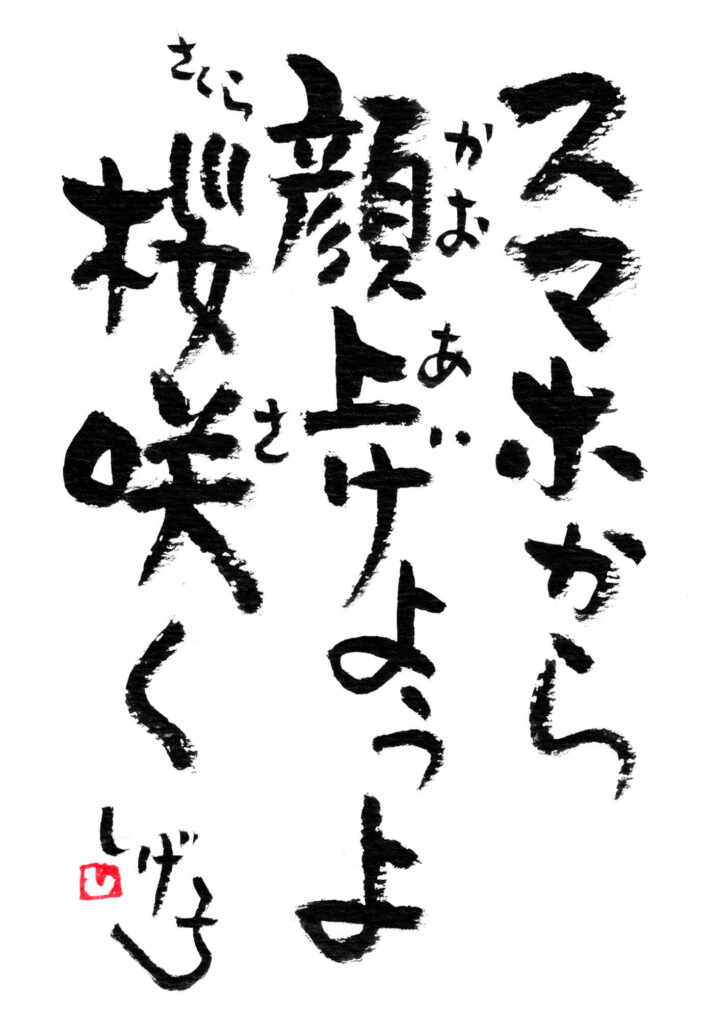 スマホから
かお
顔上げようよ
あ
さくら
桜咲く
さ
しげ子
し